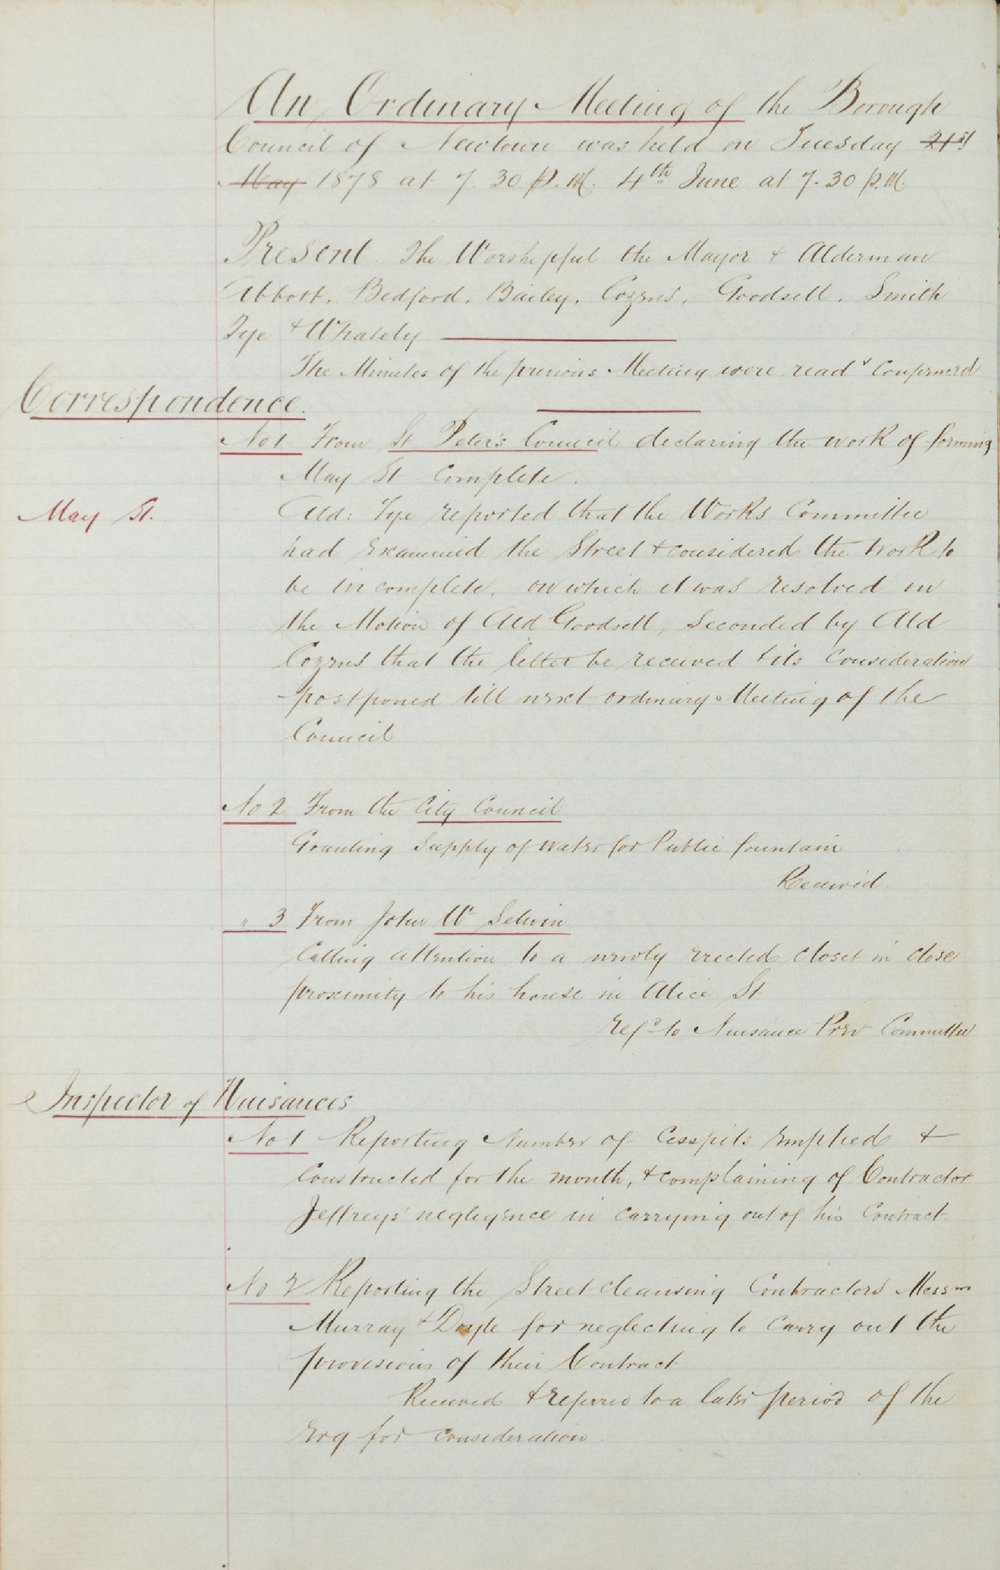 An Ordinary Meeting of the Borough
Council of Newtown was held on Tuesday 21st
May 1878 at 7.30 p.M. 4th June at 7.30 p.M.
Present The Worshipful the Mayor & Alderman
Abbott, Bedford, Bailey, Cozens, Goodsell, Smith
Tye & Whately
The Minutes of the previous Meeting were read & Confirmed
Correspondence.
No 1 From St Peter's Council declaring the work of forming
May St Complete.
May St.
Ald: Tye reported that the Works Committee
had examined the Street & considered the work to
be incomplete, on which it was resolved on
the Motion of Ald Goodsell, Seconded by Ald
Cozens that the letter be received & its Consideration
postponed till next ordinary Meeting of the
Council
No 2 From the City Council
Granting Supply of water for Public fountain
Received.
" 3 From John W Selwin
Calling attention to a newly erected closet in close
proximity to his house in Alice St
Refd to Nuisance Prev Committee
Inspector of Nuisances
No 1 Reporting Number of Cesspits emptied &
Constructed for the month, & complaining of Contractor
Jeffreys' negligence in carrying out of his Contract.
No 2 Reporting the Street cleansing Contractors Messrs
Murray & Doyle for neglecting to carry out the
provisions of their Contract
Received & referred to a later period of the
Evg for consideration.